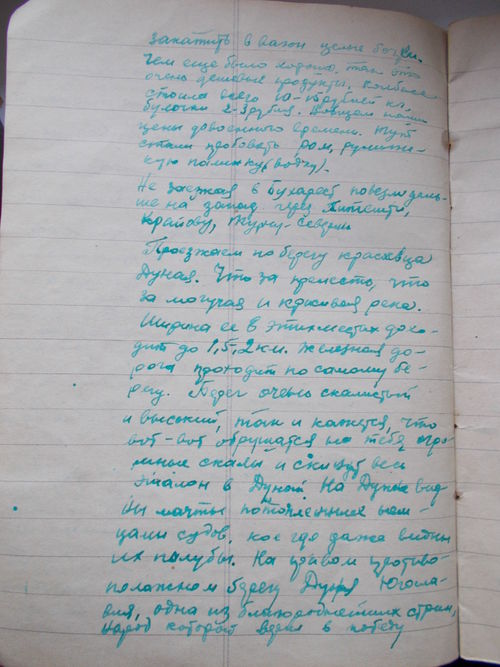 закатить в вагон целые бочки.
Чем еще было хорошо, так это
очень дешевые продукты. Колбаса
стоила всего 10-15 рублей кг.
булочки 2-3 рубля. Вобщем наши
цены довоенного времени. Тут
стали пробовать ром, румынс-
кую (водку).
Не заезжая в Бухарест повезли даль-
ше на запад через Питешти,
Крайову, Турну-Северин
Проезжаем по берегу красавца
Дуная. Что за прелесть, что
за могучая и красивая река.
Ширина ее в этих местах дохо-
дит до 1,5, 2 км. Железная до-
рога проходит по самому бе-
регу. Берег очень скалистый
и высокий, так и кажется, что
вот-вот обрушатся на тебя огро
мные скалы и скинут весь
эшалон в Дунай. На Дунае вид
ны мачты потопленные нем-
цами судов, кое где даже видны
их палубы. На правом противо-
положном берегу Дуная Югосла-
вия, одна из благороднейших стран,
народ которой верил в победу